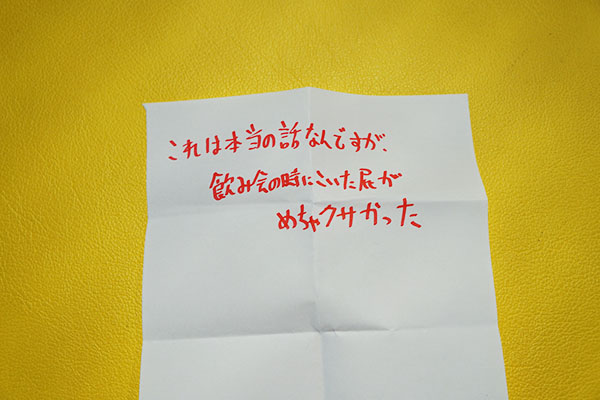 これは本当の話なんですが、
飲み会の時にこいた屁が
めちゃクサかった